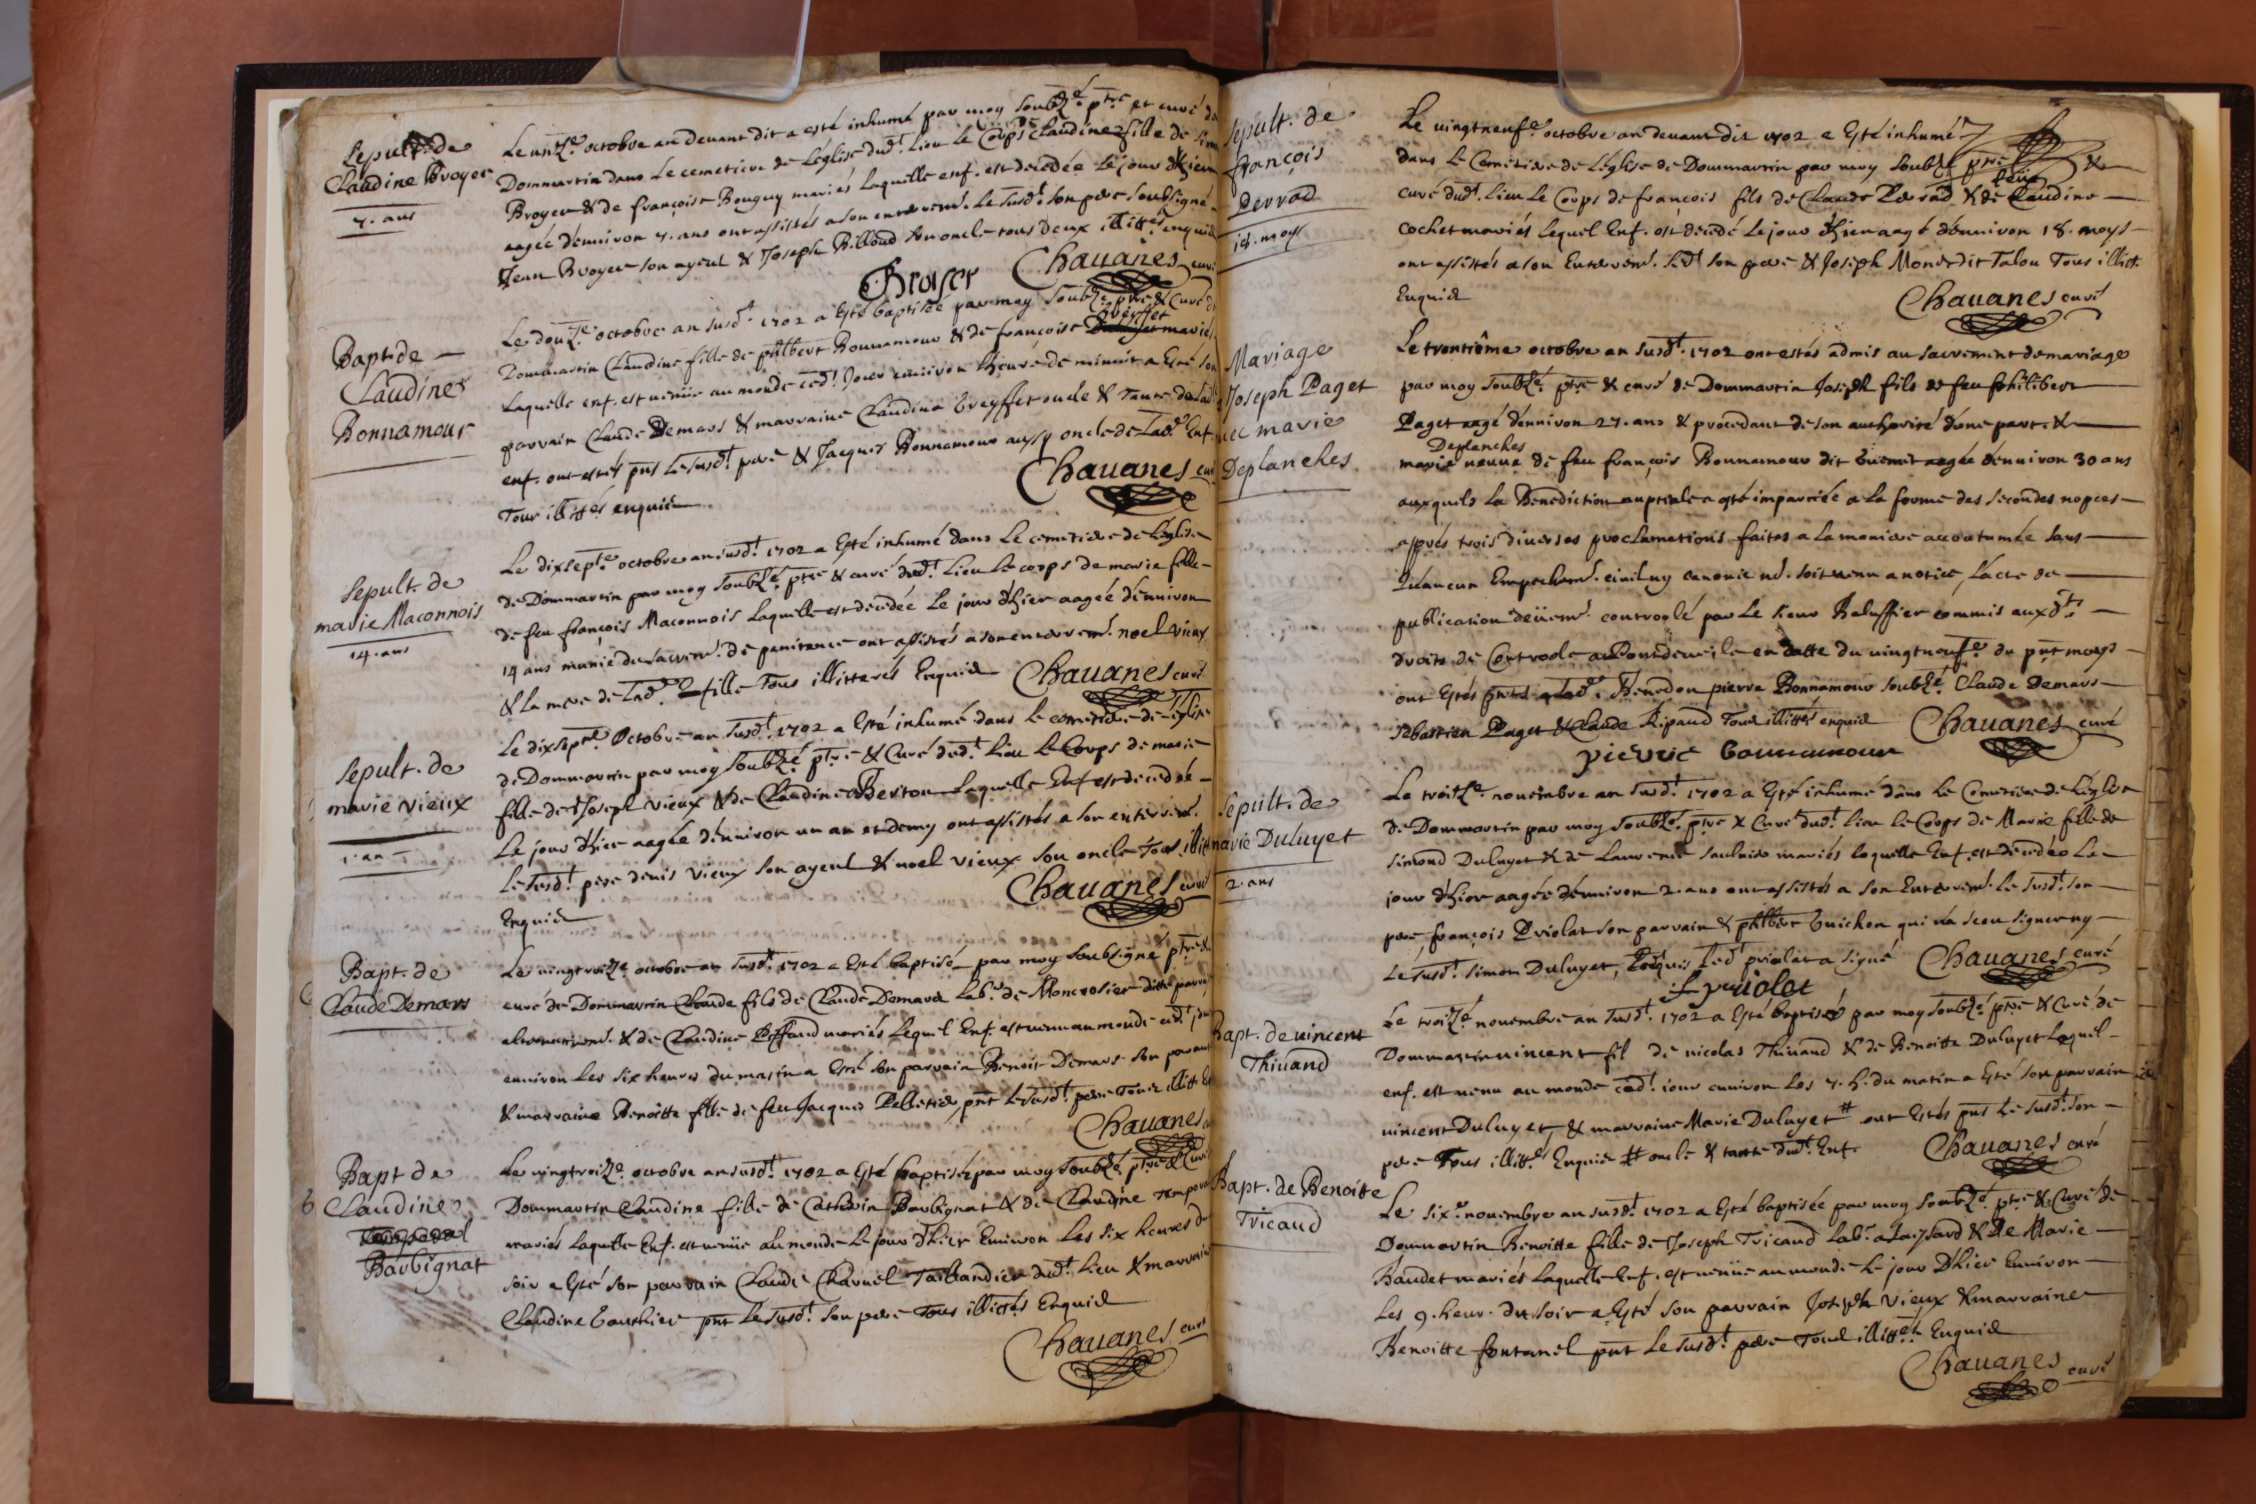 Sepult. de
Claudine Broyer
7. ans
Le unz.e octobre an devant dit a esté inhumé par moy soubz.é ptre et curé de
Dommartin dans le cemetiere de L'église dud.t Lieu Le Corps de Claudine fille de
Broyer & de françoise Bouguy mariés Laquelle enf. est décedée Le jour d'hier
aagée d'environ 7. ans ont assistés a son enterrem.t Le susd.t son pere soubsigné
Jean Broyer son ayeul & Joseph Billoud son oncle tous deux illitt.és enquis
Broiser Chauanes curé
Bapt. de
Claudine
Bonnamour
Le douz.e octobre an susd.t 1702 a Esté baptisée par moy soubz.é ptre & Curé de
Greyffet
Dommartin Claudine fille de philbert Bonnamour & de françoise mariés
Laquelle enf. est venüe au monde ced.t Jour environ L'heure de minuit a Esté son
parrain Claude Demars & marraine Claudine Greyffet oncle & tante de Lad.e
enf. ont estés pnts Le susd.t pere & Jacques Bonnamour aussy oncle de Lad.e Enf
Tous illittés enquis
Chauanes curé
Sepult. de
marie Maconnois
14. ans
Le dixsept.e octobre an susd.t 1702 a Esté inhumé dans Le cemetiere de L'église
de Dommartin par moy soubz.é ptre & curé dud.t Lieu Le corps de marie fille
de feu françois Maconnois Laquelle est décedée Le jour d'hier aagée d'environ
14 ans munie du sacrem.t de penitence ont assistés a son enterrem.t noel vieux
& La mere de Lad.e fille Tous illitterés Enquis Chauanes curé
Sepult. de
marie vieux
1. an
Le dixsept.e Octobre an susd.t 1702 a Esté inhumé dans Le cemetiere de L'église
de Dommartin par moy soubz.é ptre & Curé dud.t Lieu Le Corps de marie
fille de Joseph vieux & de Claudine Berton Laquelle Enf. est decedée
Le jour d'hier aagée d'environ un an et demy ont assistés a son enterrem.t
Le susd.t pere denis vieux son ayeul & noel vieux son oncle Tous illitt
Enquis
Chauanes curé
Bapt. de
Claude Demars
Le vingtroiz.e octobre an susd.t 1702 a Esté baptisé par moy soubsigné ptre &
curé de Dommartin Claude fils de Claude Demars Lab.r de Moncrosier
alternativem.t & de Claudine Piffaud mariés Lequel Enf. est venu au monde ced.t jour
environ Les six heures du matin a Esté son parrain Benoit Demars son parent
& marraine Benoitte fille de feu Jacques Pelletier pnt Le susd.t pere Tous illitt
Chauanes
Bapt. de
Claudine
Barbignat
Le vingtroiz.e octobre an susd.t 1702 a Esté baptisée par moy soubz.é ptre & Curé
Dommartin Claudine fille de Catherin Barbignat & de Claudine Temporal
mariés Laquelle Enf. est venüe au monde Le jour d'hier Environ Les six heures du
soir a Esté son parrain Claude Charuel Taillandier dud.t Lieu & marraine
Claudine Gauthier pnt Le susd.t son pere Tous illittés Enquis
Chauanes curé
Sepult. de
françois
Perrad
18. moys
Le vingtneuf.e octobre an devant dit 1702 a Esté inhumé
dans Le Cemetiere de L'église de Dommartin par moy soubz.é ptre &
curé dud.t Lieu Le Corps de françois fils de Claude Perrad & de Claudine
Cochet mariés Lequel Enf. est décedé Le jour d'hier aagé d'environ 18. moys
ont assistés a son Enterrem.t Led.t son pere & Joseph Monerdit Talon Tous illitt.
Enquis
Chauanes curé
Mariage
Joseph Paget
marie
Deplanches
Le trentième octobre an susd.t 1702 ont estés admis au sacrement de mariage
par moy soubz.é ptre & curé de Dommartin Joseph fils de feu philibert
Paget aagé d'environ 27. ans & procedant de son authorité d'une part. &
Deplanches
marie veuve de feu françois Bonnamour dit Guenet aagée d'environ 30 ans
auxquels La Benediction nuptiale a esté impartiée a la forme des secondes nopces
apprés trois diverses proclamations faites a la maniere accoutumée sans
qu'aucun Empechem.t civil ny canonic nd. soit venu a notice L'acte de
publication deüem.t controolé par Le sieur Baluffier commis aux d.ts
droits de Controole au Pont de veile en datte du vingtneuf.e du pnt moys
ont Estés pnts Benedon pierre Bonnamour soubz.é Claude Demars
sebastien Paget & Claude Ripaud Tous illittés enquis Chauanes curé
pierre bonnamour
Sepult. de
marie Duluyet
2. ans
Le troiz.e novembre an susd.t 1702 a Esté inhumé dans Le Cemetiere de L'église
de Dommartin par moy soubz.é ptre & Curé dud.t Lieu Le Corps de Marie fille de
simond Duluyet & de Laurence saulnier mariés Laquelle Enf. est décedée Le
jour d'hier aagée d'environ 2. ans ont assistés a son Enterrem.t Le susd.t son
pere, françois Priolat son parrain & philbert Guichon qui n'a sceu signer ny
Le susd.t simon Duluyet, Enquis Led.t priolat a signé Chauanes curé
f. priolet
Bapt. de vincent
Thivand
Le troiz.e novembre an susd.t 1702 a Esté baptisé par moy soubz.é ptre & Curé de
Dommartin vincent fil de nicolas Thivand & de Benoitte Duluyet Lequel
enf. est venu au monde ced.t jour environ Les 7. h. du matin a Esté son parrain
vincent Duluyet & marraine Marie Duluyet # ont Estés pnts Le susd.t son
pere Tous illitt.és Enquis # oncle & tante dud.t Enf. Chauanes curé
Bapt. de Benoitte
Tricaud
Le six.e novembre an susd.t 1702 a Esté baptisée par moy soubz.é ptre & Curé de
Dommartin Benoitte fille de Joseph Tricaud Lab.r a Laysard & de Marie
Baudet mariés Laquelle Enf. est venüe au monde Le jour D'hier Environ
Les 9. heur. du soir a Esté son parrain Joseph vieux & marraine
Benoitte fontanel pnt Le susd.t pere Tous illittés Enquis
Chauanes curé